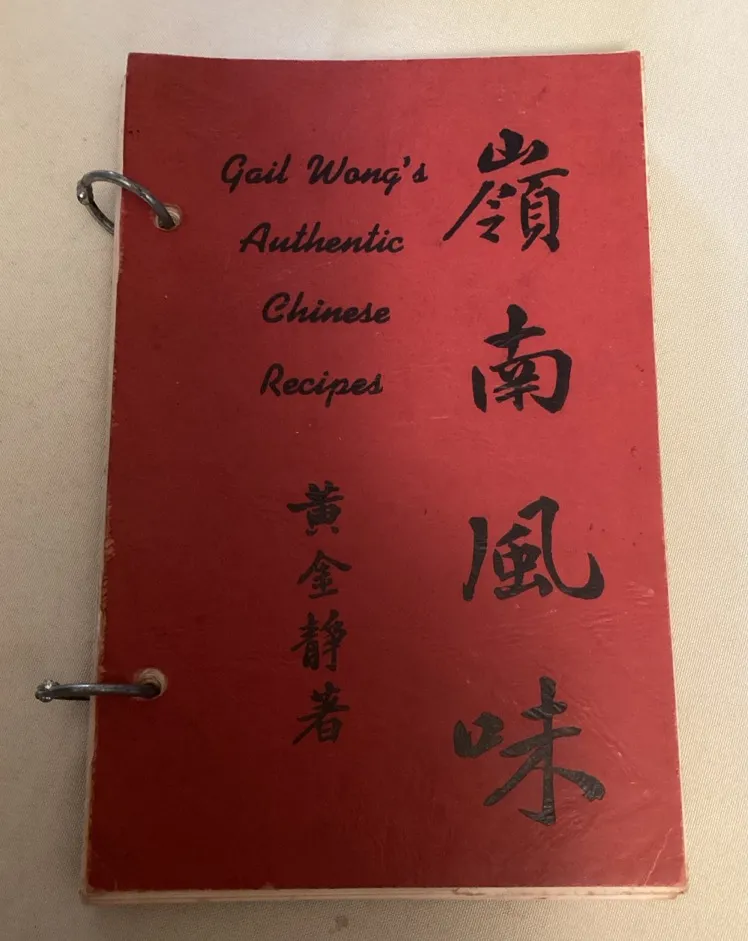 Gail Wong's
Authentic
Chinese
Recipes
嶺南風味
黃金靜著